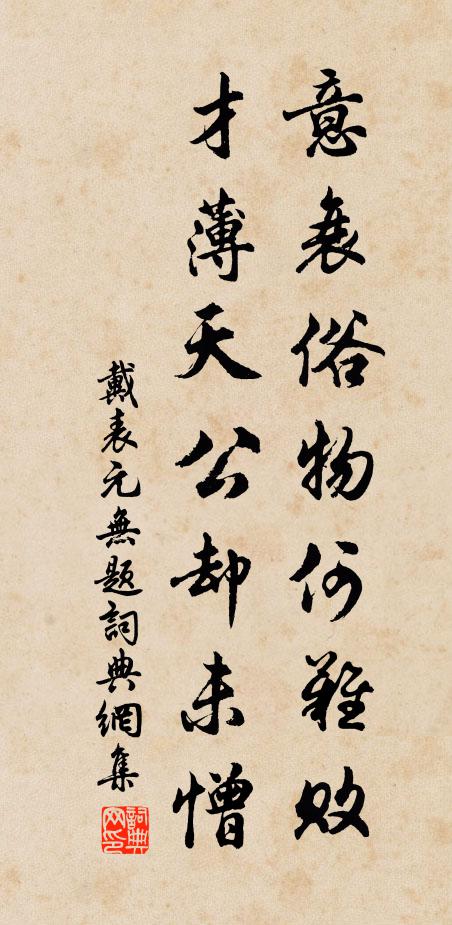 意衰俗物何難敗
才薄天公却未憎
戴表元無題詞典網集
詞典網印